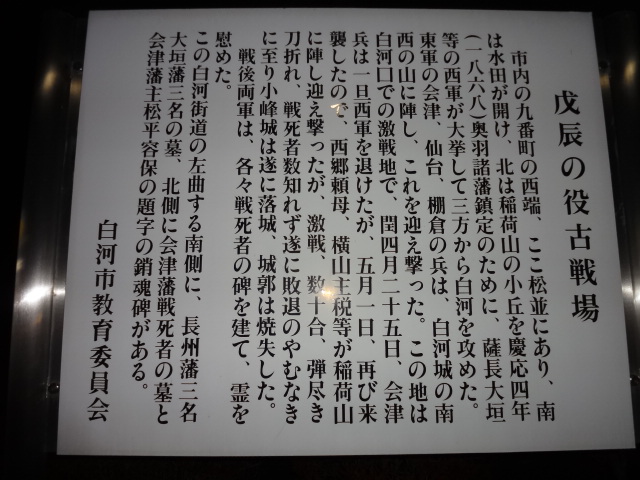 戊辰の役古戦場
市内の九番町の西端、ここ松並にあり、南
は水田が開け、北は稲荷山の小丘を慶応四年
(一八六八)奥羽諸藩鎮定のために、薩長大垣
等の西軍が大挙して三方から白河を攻めた。
東軍の会津、仙台、棚倉の兵は、白河城の南
西の山に陣し、これを迎え撃った。この地は
白河口での激戦地で、閏四月二十五日、会津
兵は一旦西軍を退けたが、五月一日、再び来
襲したので、西郷頼母、横山主税等が稲荷山
に陣し迎え撃ったが、激戦、数十合、弾尽き
刀折れ、戦死者数知れず遂に敗退のやむなき
に至り小峰城は遂に落城、城郭は焼失した。
戦後両軍は、各々戦死者の碑を建て、霊を
慰めた。
この白河街道の左曲する南側に、長州藩三名
大垣藩三名の墓、北側に会津藩戦死者の墓と
会津藩主松平容保の題字の銷魂碑がある。
白河市教育委員会